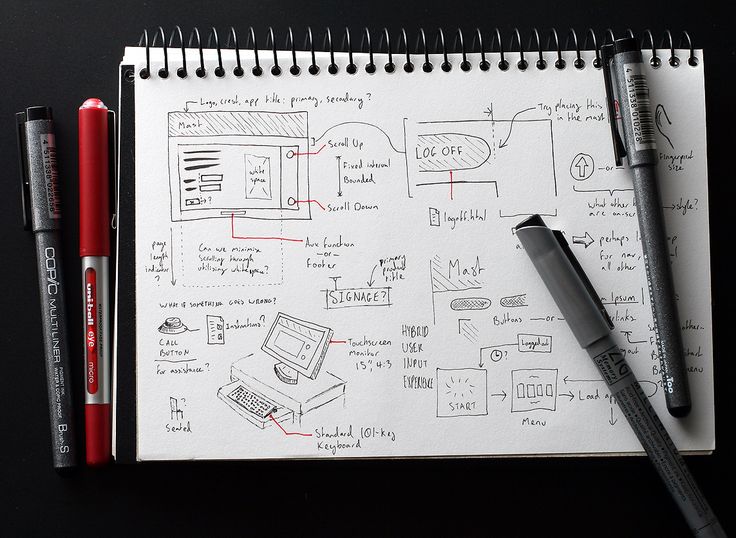 Logo, crest, app title: primary, secondary?
Mast
white
space
?
Scroll Up
Fixed interval
Bounded
Scroll Down
LOG OFF
Try placing this
in the mast
Fingerprint
size
logoff.html
what other
are on-screen
style?
page
length
indicator
?
Can we minimise
scrolling through
utilising whitespace?
Aux function
-or-
Footer
primary
product
title
SIGNAGE?
Mast
Buttons -or-
links
perhaps
For now,
all other
Ipsum
WHAT IF SOMETHING GOES WRONG?
Instructions?
CALL
BUTTON
For assistance?
Seated
Touchscreen
monitor
15", 4:3
Standard 101-key
Keyboard
HYBRID
USER
INPUT
EXPERIENCE
?
Logged out
START
Menu
Load
Menu
COPIC MULTILINER
PIGMENT INK
WATER & COPIC PROOF
BrushS
4511338
uni-ball
eye
micro
4511338010228